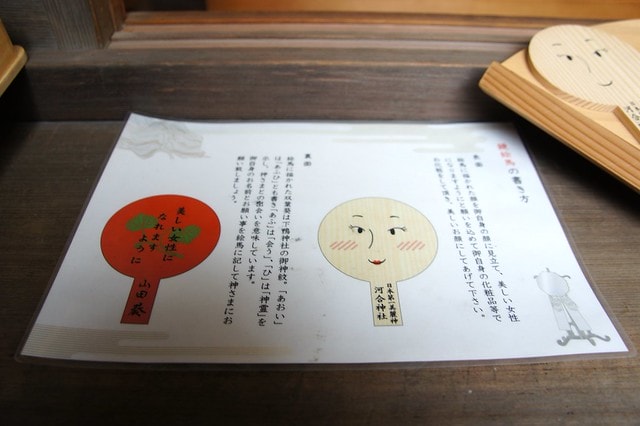 鏡絵馬の書き方
表面
絵馬に描かれた顔を御自身の顔に見立て、美しい女性
になれますようにとお願いを込めて御自身の化粧品等で
お化粧をして頂き、美しいお顔にしてあげて下さい。
日本第一美麗神
河合神社
裏面
絵馬に描かれた双葉葵は下鴨神社の御神紋。「あおい」
は「あふひ」とも書き「あふ」は「会う」、「ひ」は「神霊」を
示し、神さまとの出会いを意味しています。
御自身のお名前とお願い事を絵馬に記して神さまにお
願い致しましょう。
美しい女性に
なれます
ように
山田